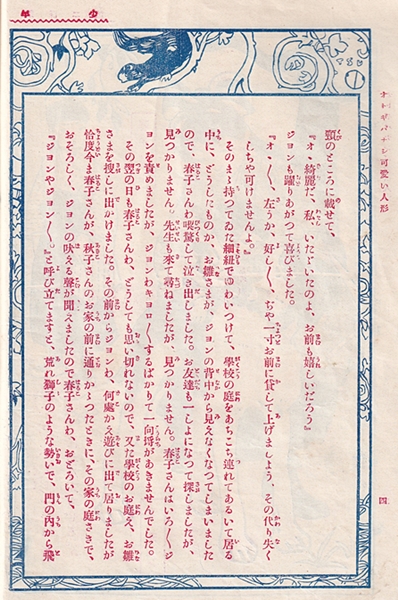 少年
オトギバナシ可愛い人形
四
頸のところに載せて、
『オヽ綺麗だ、私、いたゞいたのよ、お前も嬉しいだろう』
ジヨンも躍りあがつて喜びました。
『オヽ〳〵、左うか、好し〳〵、ぢや一寸お前に貸して上げましよう、その代り失く
しちや可けませんよ。』
そのまゝ持つてゐた細紐でゆわいつけて、學校の庭をあちこち連れてあるいて居る
中に、どうしたものか、お雛さまが、ジヨンの背中から見えなくなつてしまいました
ので、春子さんわ喫驚して泣き出しました。お友達も一しよになつて探しましたが、
見つかりません。先生も來て尋ねましたが、見つかりません。春子さんはいろ〳〵ジ
ヨンを責めましたが、ジヨンわキヨロ〳〵するばかりで一向埓があきませんでした。
その翌の日も春子さんわ、どうしても思い切れないので、又た學校のお庭え、お雛
さまを搜しに出かけました。その前からジヨンわ、何處かえ遊びに出て居りましたが
恰度今ま春子さんが、秋子さんのお家の前に通りかゝつたときに、その家の庭さきで、
おそろしく、ジヨンの吠える聲が聞えましたので春子さんわ、おどろいて、
『ジヨンやジヨン〳〵。』と呼び立てますと、荒れ獅子のような勢いで、門の内から飛